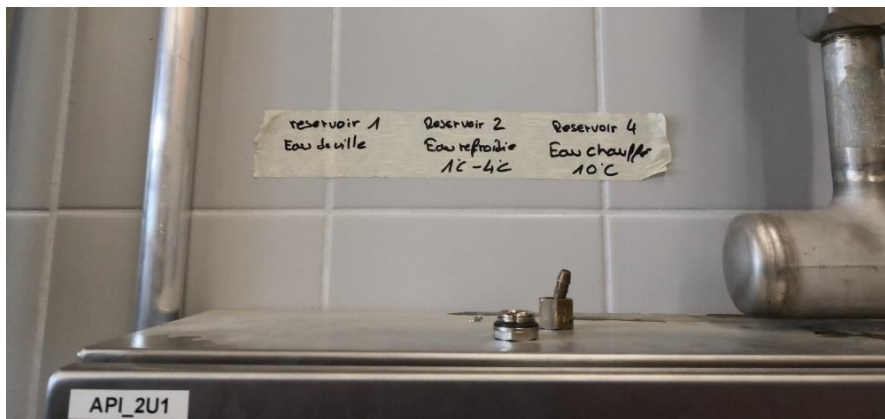 reservoir 1
Eau de ville
Reservoir 2
Eau refroidie
1°C - 4°C
Reservoir 4
Eau chauffer
10°C
API_2U1